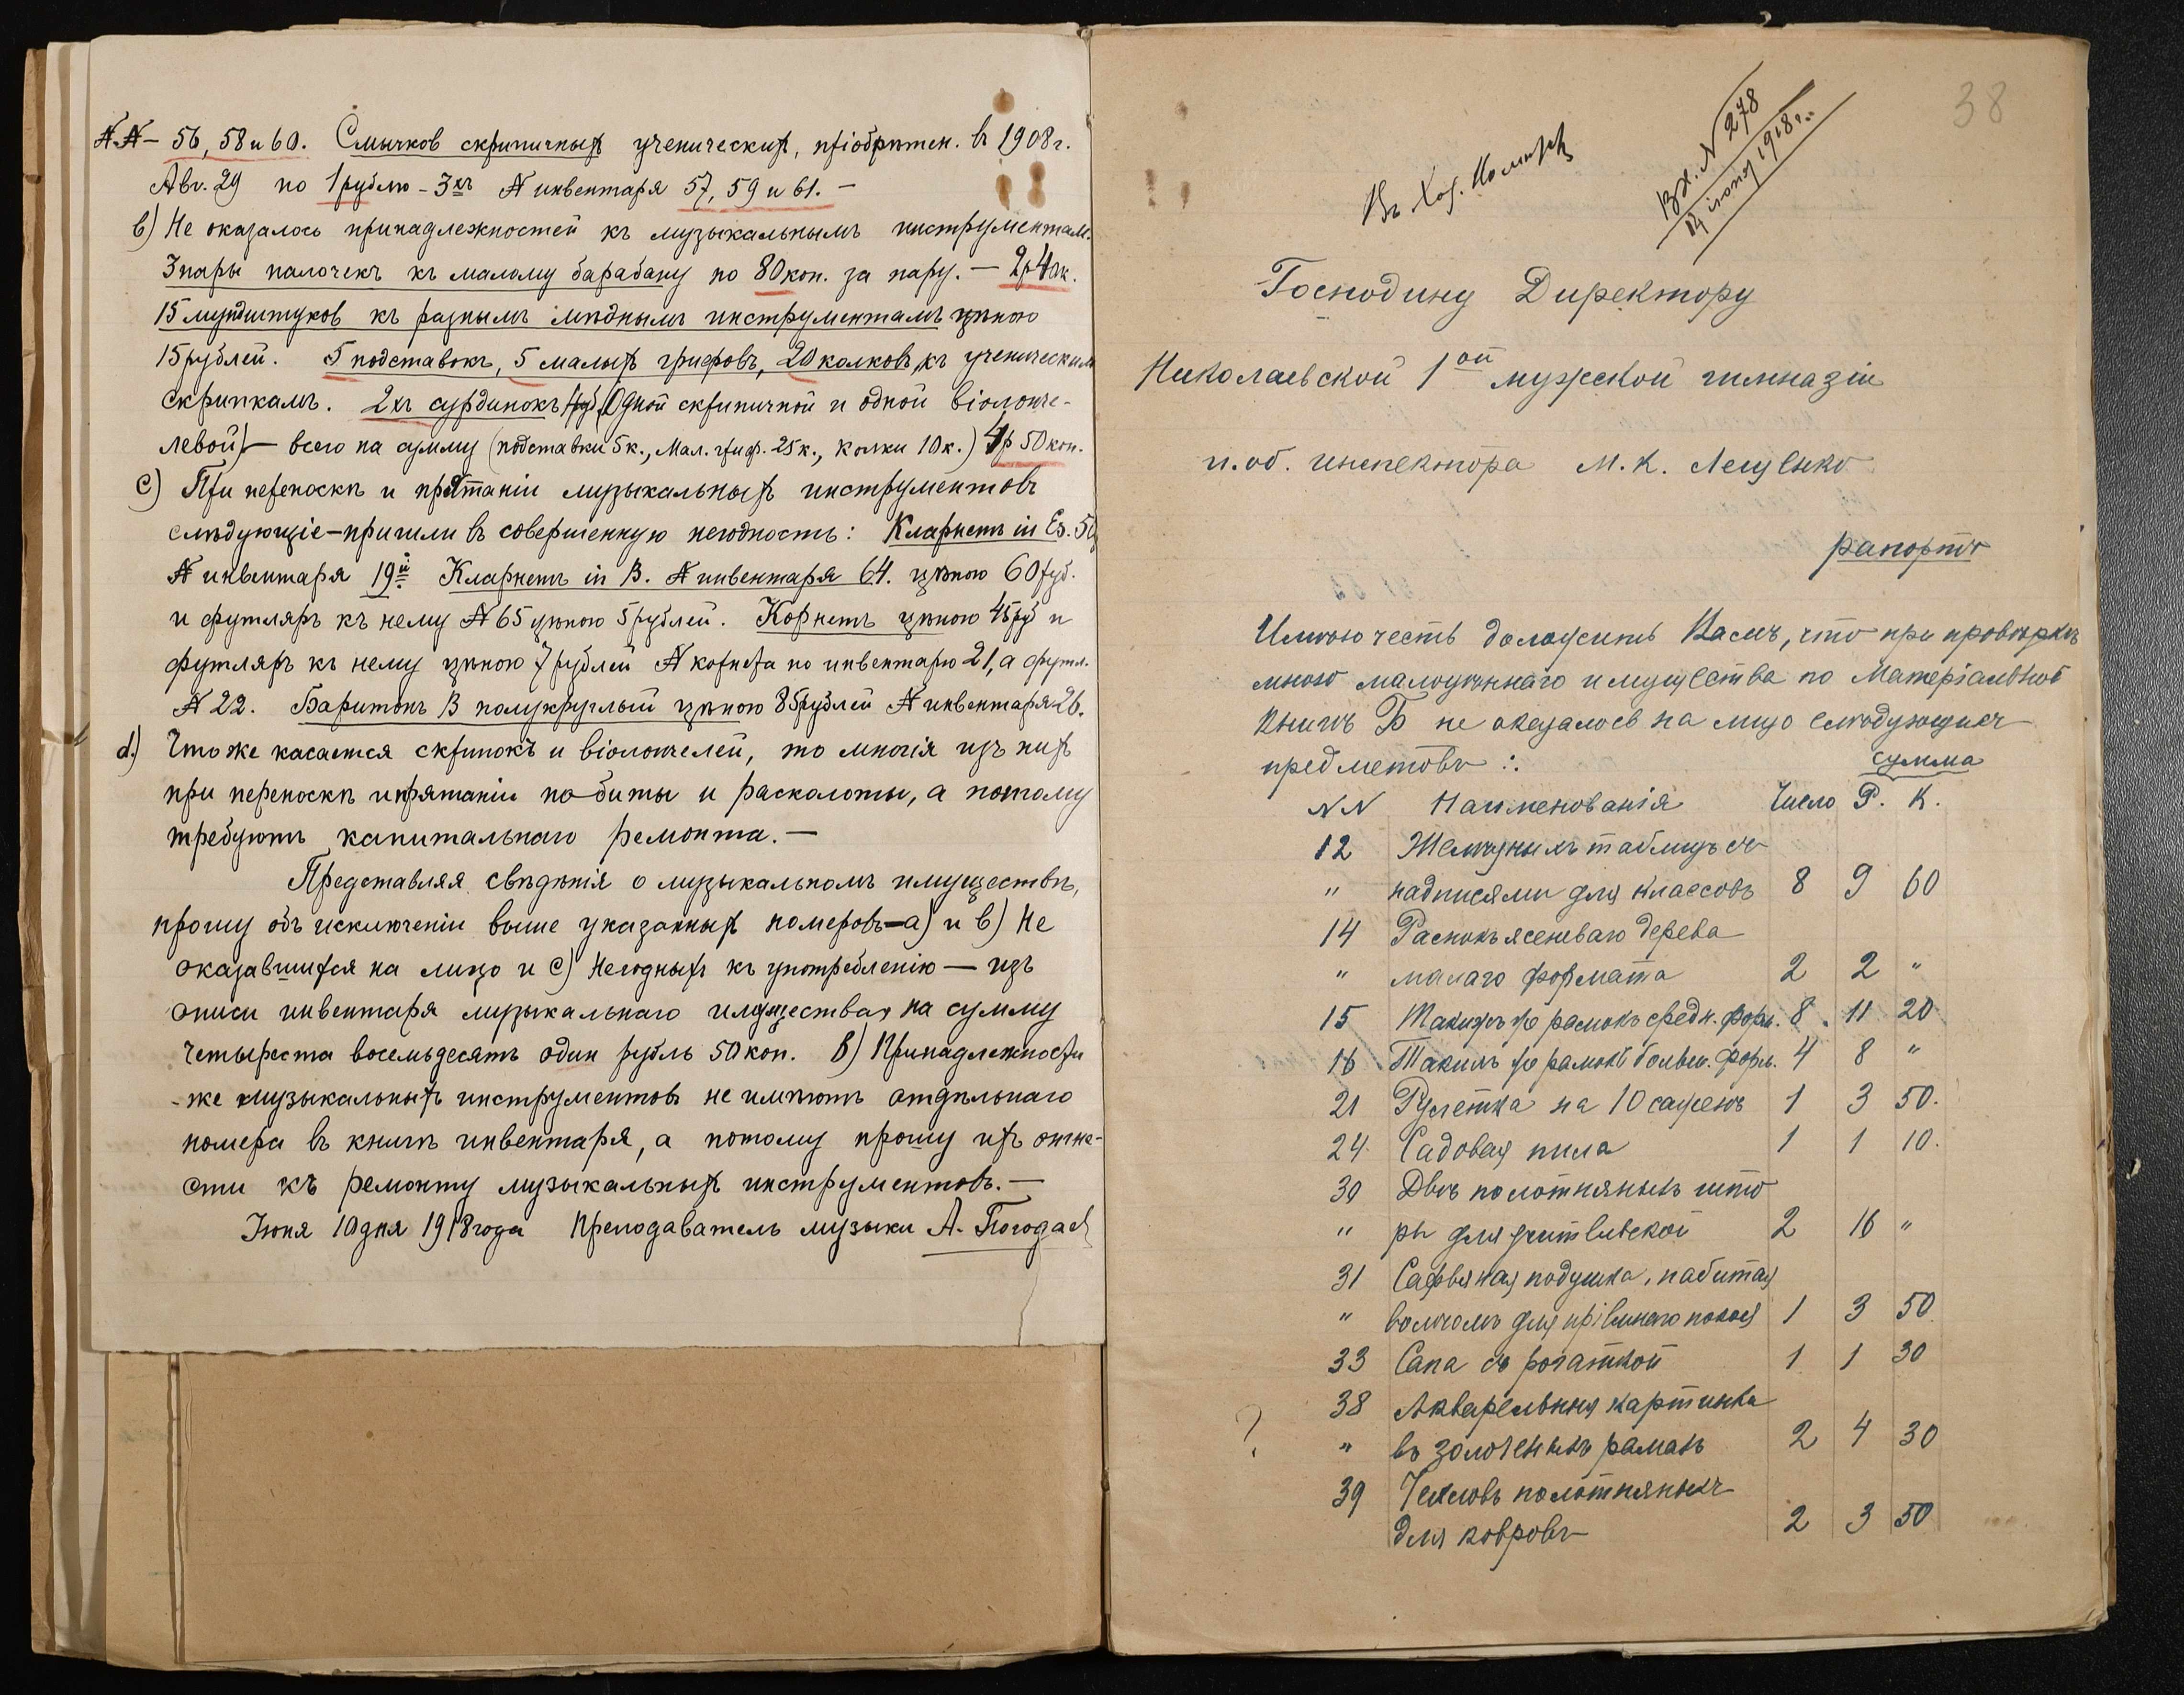 №№ – 56, 58 и 60. Смычков скрипичныхъ ученическихъ, пріобрѣтен. въ 1908 г.
Авг. 29 по 1 рублю – 3хъ № инвентаря 57, 59 и 61. –
в) Не оказалось принадлежностей къ музыкальнымъ инструментам.
3 пары палочекъ къ малому барабану по 80 коп. за пару. – 2р 40к.
15 мундштуков къ разнымъ мѣднымъ инструментамъ цѣною
15 рублей. 5 подставокъ, 5 малыхъ грифовъ, 20 колковъ, къ ученическимъ
скрипкамъ. 2хъ сурдинокъ (одной скрипичной и одной віолонче-
левой) – всего на сумму (подставки 5 к., Мал. гриф. 25 к., колки 10 к.) 4р 50 коп.
с) При переноскѣ и прятаніи музыкальныхъ инструментовъ
слѣдующіе – пришли въ совершенную негодность: Кларнетъ in Es. 50
№ инвентаря 19й Кларнетъ in B. № инвентаря 64. цѣною 60 руб.
и футляръ къ нему № 65 цѣною 5 рублей. Корнетъ цѣною 45 руб и
футляръ къ нему цѣною 7 рублей № корнета по инвентарю 21, а футл.
№ 22. Баритонъ B полукруглый цѣною 85 рублей № инвентаря 26.
d.) Что же касается скрипокъ и віолончелей, то многія изъ нихъ
при переноскѣ и прятаніи побиты и расколоты, а потому
требуютъ капитальнаго ремонта. –
Представляя свѣдѣнія о музыкальномъ имуществѣ,
прошу объ исключеніи выше указанныхъ номеровъ – а) и в) Не
оказавшихся на лицо и с) Негодныхъ къ употребленію – изъ
описи инвентаря музыкальнаго имущества, на сумму
Четыреста восемьдесятъ один рубль 50 коп. В) Принадлежности
же музыкальныхъ инструментовъ не имѣютъ отдѣльнаго
номера въ книгѣ инвентаря, а потому прошу ихъ отне-
сти къ ремонту музыкальныхъ инструментовъ. –
Іюня 10 дня 1918 года Преподаватель музыки А. Погодаев
38
Въ Хоз.
Вх. № 278
14 іюня 1918 г.
Господину Директору
Николаевской 1ой мужской гимназіи
и. об. инспектора М. К. Лещенко
рапортъ
Имѣю честь доложить Вамъ, что при провѣркѣ
мною малоцѣннаго имущества по Матеріальной
книгѣ Б не оказалось на лицо слѣдующихъ
предметовъ:
сумма
NN Наименованія Число Р. К.
12 Желѣзныхъ таблицъ съ
" надписями для классовъ 8 9 60
14 Рамокъ ясеневаго дерева
" малаго формата 2 2 "
15 Такихъ же рамокъ средн. форм. 8 11 20
16 Такихъ же рамокъ больш. форм. 4 8 "
21 Рулетка на 10 сажень 1 3 50.
24 Садовая пила 1 1 10.
30 Двѣ полотняныхъ што
" ры для учительской 2 16 "
31 Сафьяная подушка, набитая
" волосомъ для пріемнаго покоя 1 3 50
33 Сапа съ рогаткой 1 1 30
38 Акварельныя картинки
? " въ золоченыхъ рамахъ 2 4 30
39 Чехловъ полотняныхъ
для ковровъ 2 3 50